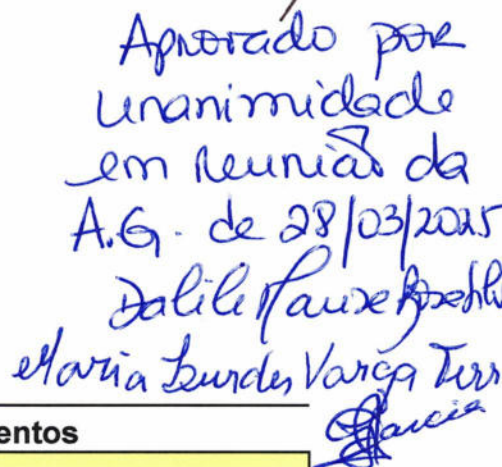 Aprovado por
unanimidade
em reunião da
A.G. de 28/03/2025
Maria Lurdes Varga
Garcia
entos